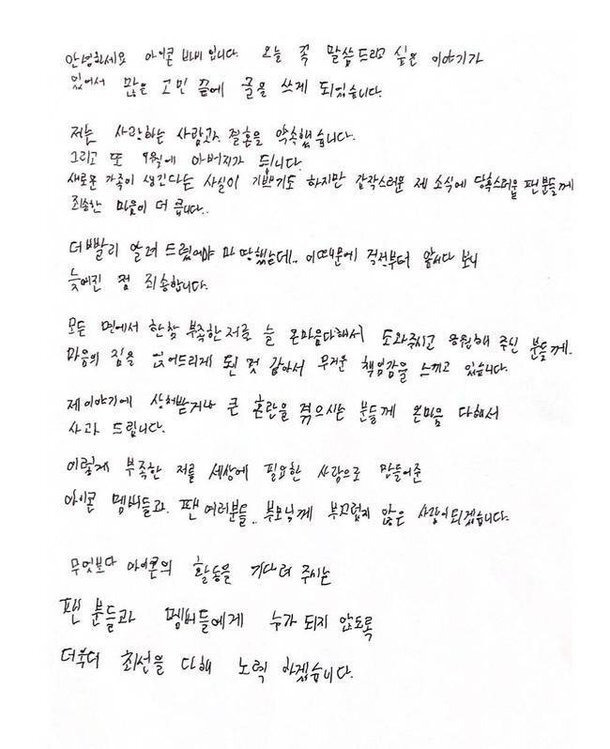 안녕하세요 아이콘 바비 입니다. 오늘 꼭 말씀드리고 싶은 이야기가
있어서 많은 고민 끝에 글을 쓰게 되었습니다.
저는 사랑하는 사람과 결혼을 약속했습니다.
그리고 또 9월에 아버지가 됩니다.
새로운 가족이 생긴다는 사실이 기쁘기도 하지만 갑작스러운 제 소식에 당혹스러울 팬분들께
죄송한 마음이 더 큽니다.
더 빨리 알려 드렸어야 마땅했는데.. 이 때문에 걱정부터 앞서다 보니
늦어진 점 죄송합니다.
모든 면에서 한참 부족한 저를 늘 온마음다해서 도와주시고 응원해 주신 분들께.
마음의 짐을 얹어드리게 된 것 같아서 무거운 책임감을 느끼고 있습니다.
제 이야기에 상처받거나 큰 혼란을 겪으시는 분들께 온마음 다해서
사과 드립니다.
이렇게 부족한 저를 세상에 필요한 사람으로 만들어준
아이콘 멤버들과. 팬 여러분들.. 부모님께 부끄럽지 않은 사람이되겠습니다.
무엇보다 아이콘의 활동을 기다려 주시는
팬 분들과 멤버들에게 누가 되지 않도록
더욱더 최선을 다해 노력 하겠습니다.